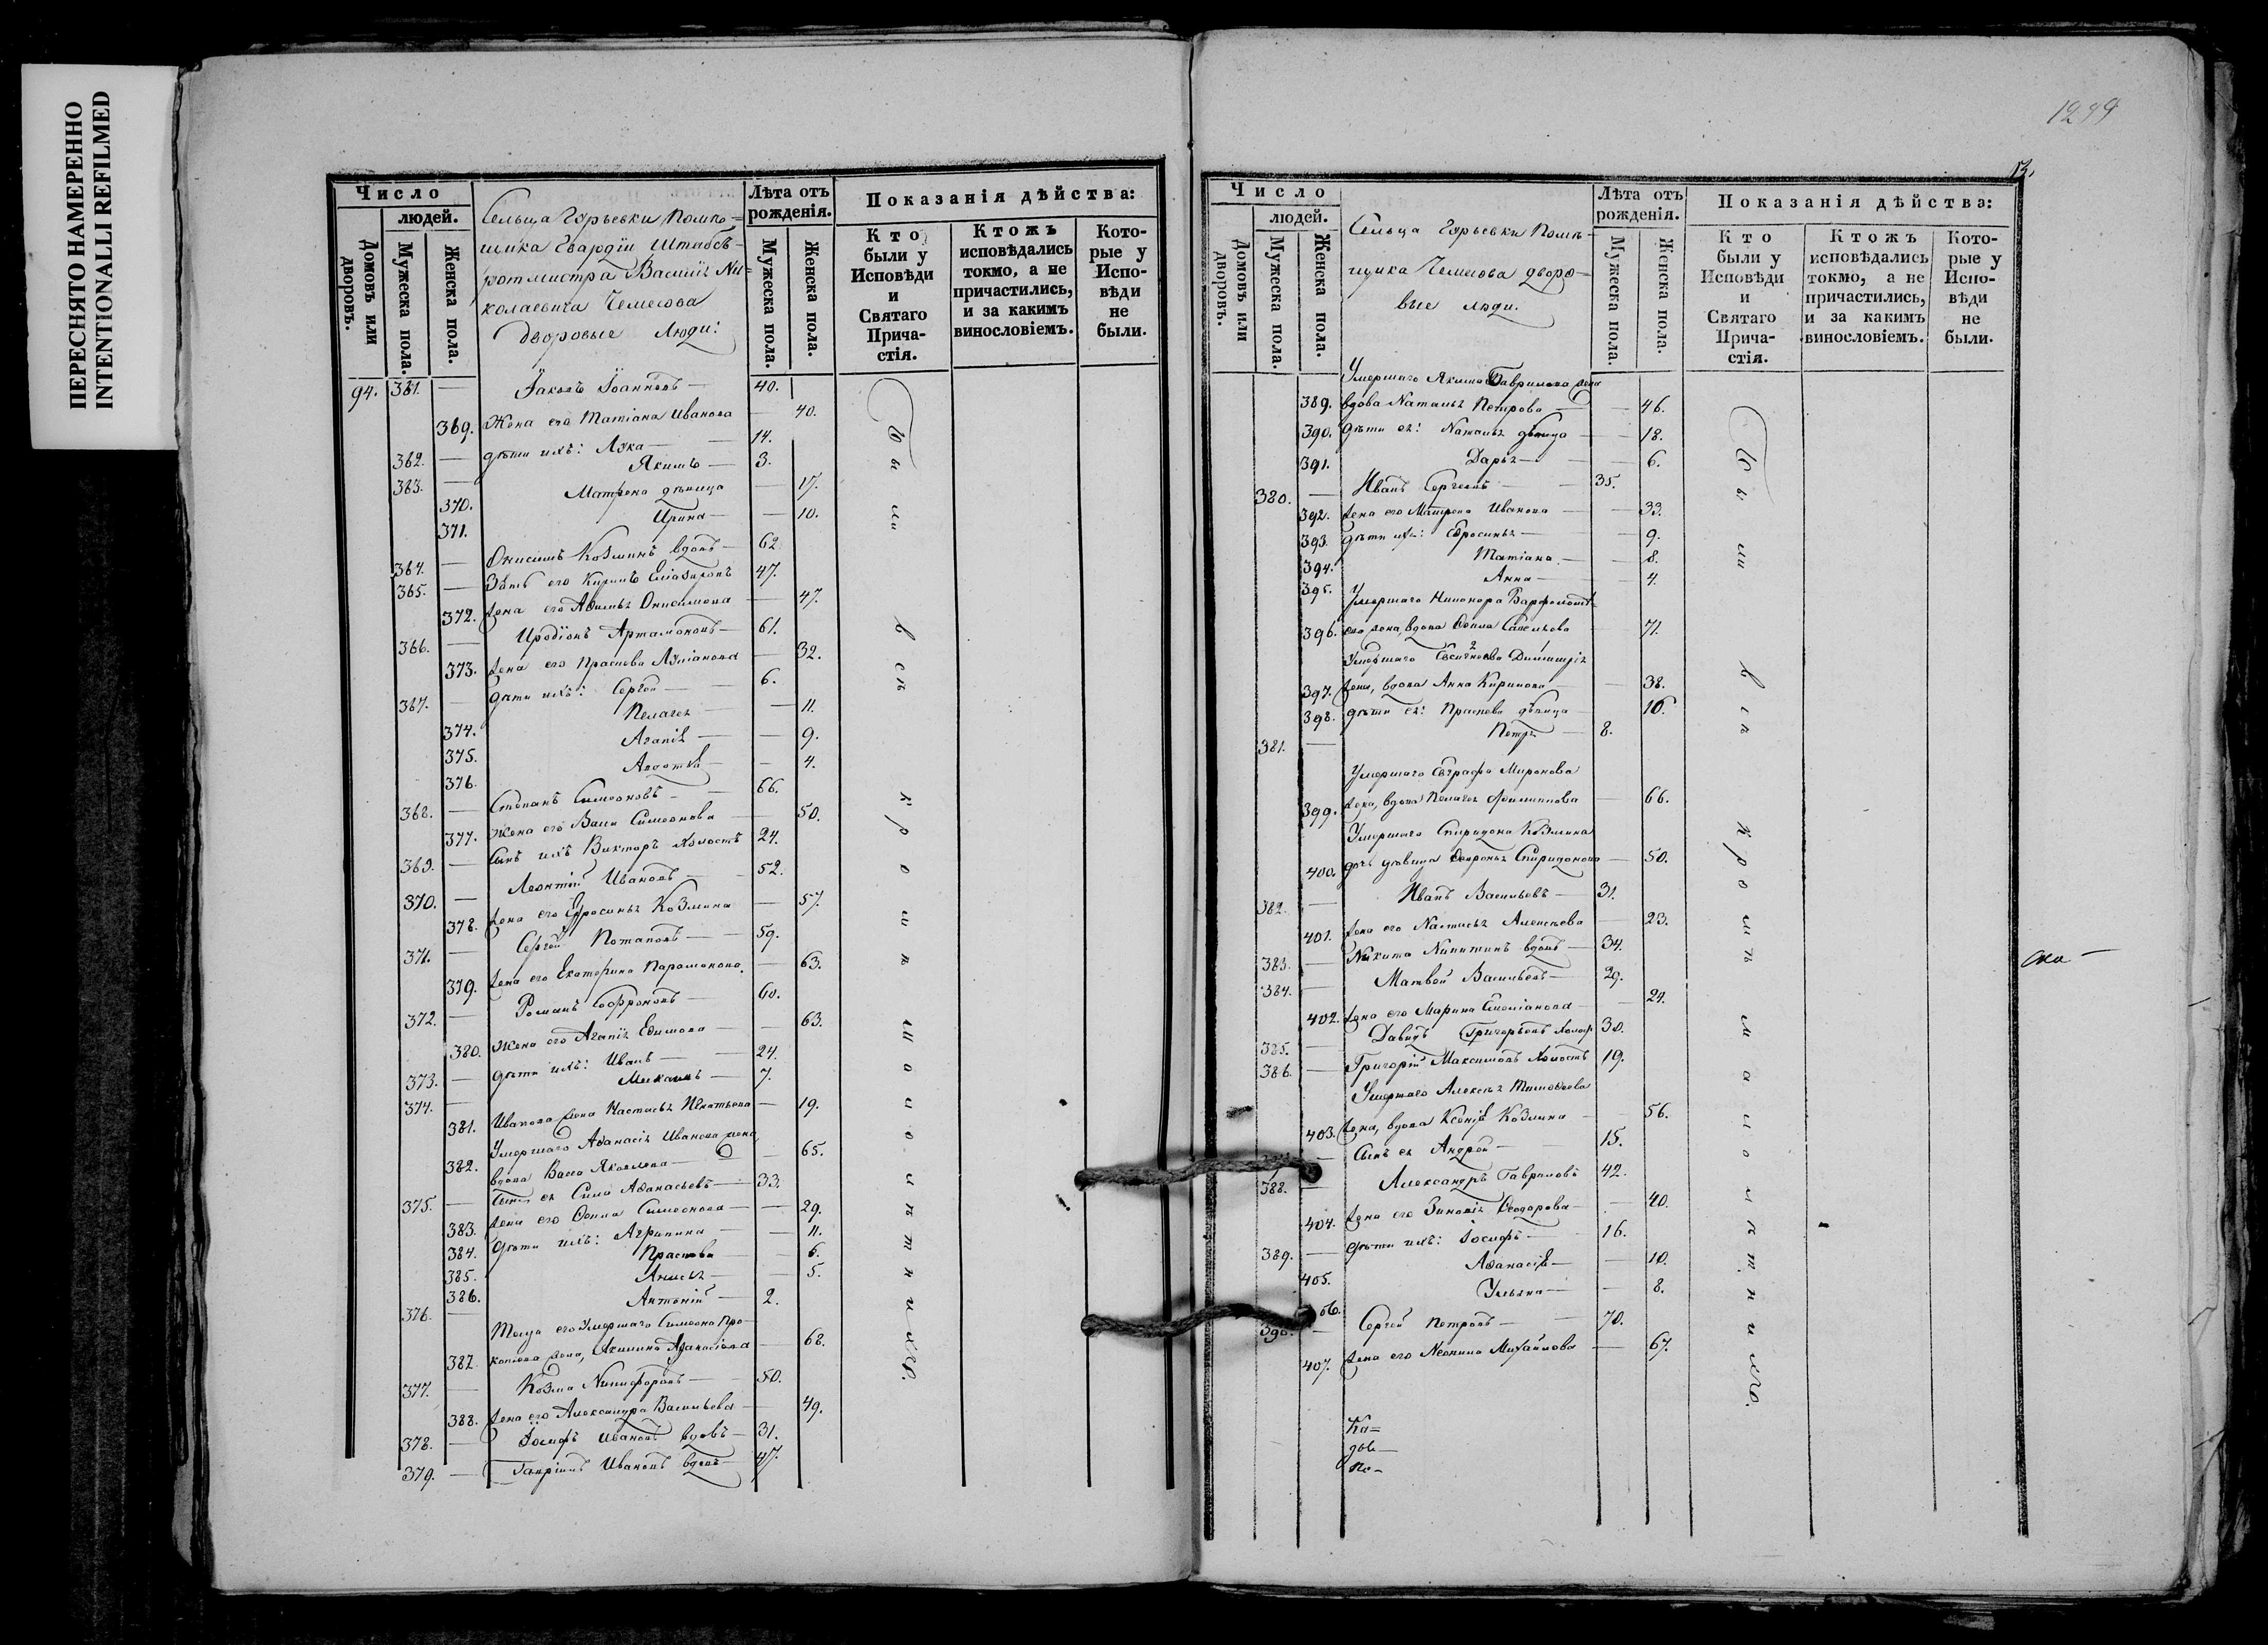 ПЕРЕСНЯТО НАМЕРЕННО
INTENTIONALLI REFILMED
Число
людей.
Домовъ или дворовъ.
Мужеска пола.
Женска пола.
Сельца Гурьевки Помѣ-
щика Гвардіи Штабсъ-
ротмистра Василія Ни-
колаевича Чемесова
дворовые люди:
Лѣта отъ рожденія.
Мужеска пола.
Женска пола.
Показанія дѣйства:
Кто были у Исповѣди и Святаго Прича-стія.
Ктожъ исповѣдались токмо, а не причастились, и за какимъ винословіемъ.
Кото-рые у Испо-вѣди не были.
94. 361. — Іаковъ Іоанновъ — 40.
369. Жена его Татіана Иванова — 40.
362. — дѣти ихъ: Лука — 14.
363. — Якимъ — 3.
370. Матрена дѣвица — 17.
371. Ирина — 10.
364. — Онисимъ Козминъ вдовъ — 62
365. — Зять его Кирилъ 47.
372. жена его Онисимова — 47.
366. — Иродіонъ Артамоновъ — 61.
373. жена его Прасковья — 32.
367. — дѣти ихъ: Сергей — 6.
374. Пелагея — 11.
375. Агапія — 9.
376. Авдотья — 4.
368. — Степанъ Симеоновъ — 66.
377. Жена его Васса Симеонова — 50.
369. — Сынъ ихъ Викторъ холостъ 24.
370. — Леонтій Ивановъ — 52.
378. жена его Ефросинья Козмина — 57.
371. — Сергей Потаповъ — 59.
379. жена его Екатерина — 63.
372. — Романъ Софроновъ — 60.
380. Жена его Агапія Ефимова — 63.
373. — дѣти ихъ: Иванъ — 24.
374. — Михаилъ — 7.
381. Иванова жена Настасья Игнатьева — 19.
Умершаго Афанасія Иванова жена,
382. вдова Васса Яковлева — 65.
375. — Сынъ ея Сила Афанасьевъ — 33.
383. жена его Симеонова — 29.
384. дѣти ихъ: Агрипина — 11.
385. Прасковья — 6.
386. Анисья — 5.
376. — Антоній — 2.
Теща его Умершаго Симеона Про-
387. копьева жена, Акилина Афанасьева — 68.
377. — Козма Никифоровъ — 50.
388. жена его Александра Васильева — 49.
378. — Іосифъ Ивановъ вдовъ — 31.
379. — Гавріилъ Ивановъ вдовъ — 47.
Были всѣ кромѣ малолѣтнихъ.
1299
13.
Число
людей.
Домовъ или дворовъ.
Мужеска пола.
Женска пола.
Сельца Гурьевки Помѣ-
щика Чемесова дворо-
вые люди.
Лѣта отъ рожденія.
Мужеска пола.
Женска пола.
Показанія дѣйства:
Кто были у Исповѣди и Святаго Прича-стія.
Ктожъ исповѣдались токмо, а не причастились, и за какимъ винословіемъ.
Кото-рые у Испо-вѣди не были.
Умершаго Якима Гаврилова жена
389. вдова Наталья Петрова — 46.
390. дѣти ея: Наталья дѣвица — 18.
391. Дарья — 6.
380. — Иванъ Сергеевъ — 35.
392. жена его Матрена Иванова — 33.
393. дѣти ихъ: Ефросинья — 9.
394. Татіана — 8.
395. Анна — 4.
Умершаго Никонора Варфоломѣ-
396. его жена, вдова Савельева — 71.
Умершаго Димитрія
397. жена, вдова Анна Кирилова — 38.
398. дѣти ея: Прасковья дѣвица — 16.
381. — Петръ — 8.
Умершаго Евграфа Миронова
399. жена, вдова Пелагея Филиппова — 66.
Умершаго Спиридона Козмина
400. дочь дѣвица Спиридонова — 50.
382. — Иванъ Васильевъ — 31.
401. жена его Настасья Алексѣева — 23.
383. — Никита Никитинъ вдовъ — 34.
384. — Матвей Васильевъ — 29.
402. жена его Марина — 24.
385. — Давидъ Григорьевъ холост 30.
386. — Григорій Максимовъ холостъ 19.
Умершаго Алексѣя Тимофеева
403. жена, вдова Ксенія Козмина — 56.
— Сынъ ея Андрей — 15.
388. — Александръ Гавриловъ 42.
404. жена его Зиновія Феодорова — 40.
389. — дѣти ихъ: Іосифъ — 16.
405. Афанасія — 10.
06. Ульяна — 8.
390. — Сергей Петровъ — 70.
407. жена его Михайлова — 67.
Были всѣ кромѣ малолѣтнихъ.